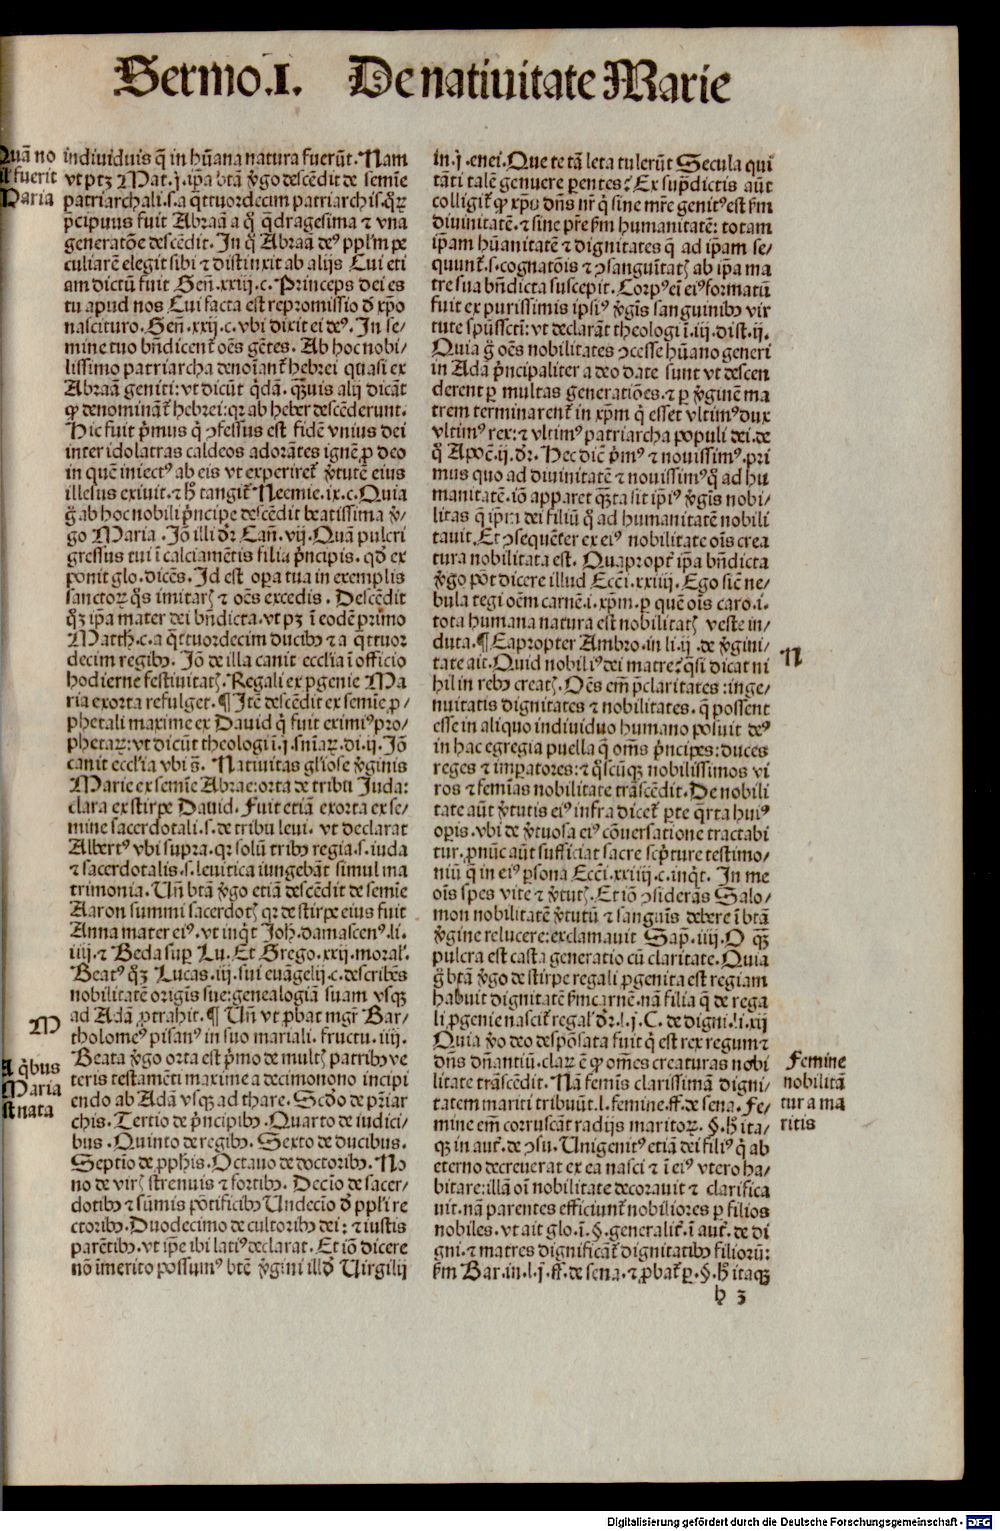 Sermo .I. De natiuitate Marie
Quā no
il fuerit
Maria
indiuiduis q̄ in hūana natura fuerūt. Nam
vt ptꝫ Mat. j. ip̄a btā v̓go descēdit de semīe
patriarchali .s. a q̄ttuordecim patriarchis. qꝝ
p̄cipuus fuit Abraā a q̊ q̄dragesima ⁊ vna
generatōe descēdit. In q̊ Abraā de⁹ ppl'm pe
culiarē elegit sibi ⁊ distinxit ab alijs Cui eti
am dictū fuit Gen̄. xxiij. c. Princeps dei es
tu apud nos Cui facta est repromissio d̓ xp̄o
nascituro. Gen̄. xxij. c. vbi dixit ei de⁹. In se/
mine tuo bn̄dicent̄ oēs gētes. Ab hoc nobi/
lissimo patriarcha denoīant̄ hebrei quasi ex
Abraā geniti: vt dicūt q̄dā. q̄ꝫuis alij dicāt
ꝙ denominant̄ hebrei: qꝛ ab heber descēderunt.
Hic fuit p̄mus q̄ ꝯfessus est fidē vnius dei
inter idolatras caldeos adorātes ignē ꝓ deo
in quē iniect⁹ ab eis vt experiret̄ v̓tutē eius
illesus exiuit. ⁊ h̄ tangit̄ Neemie. ix. c. Quia
g̊ ab hoc nobili p̄ncipe descēdit beatissima v̓/
go Maria. Iō illi dr̄ Can̄. vij. Quā pulcri
gressus tui ī calciamētis filia p̄ncipis. qd̓ ex
ponit glo. dicēs. Id est opa tua in exemplis
sanctoꝝ q̊s imitaris ⁊ oēs excedis. Descēdit
qꝫ ip̄a mater dei bn̄dicta. vt pꝫ ī eodē primo
Matth. c. a q̄ttuordecim ducibꝰ ⁊ a q̄ttuor
decim regibꝰ. Iō de illa canit eccl̓ia ī officio
hodierne festiuitatis. Regali ex ꝓgenie Ma
ria exorta refulget. ¶ Itē descēdit ex semīe ꝓ/
phetali maxime ex Dauid q̄ fuit eximi⁹ pro/
phetaꝝ: vt dicūt theologi ī .j. snīaꝝ. di. ij. Iō
canit eccl̓ia vbi s̄. Natiuitas gl̓iose v̓ginis
Marie ex semīe Abrae: orta de tribu Iuda:
clara ex stirpe Dauid. Fuit etiā exorta ex se/
mine sacerdotali .s. de tribu leui. vt declarat
Albert⁹ vbi supra. qꝛ solū tribꝰ regia .s. iuda
⁊ sacerdotalis .s. leuitica iungebāt simul ma
trimonia. Un̄ btā v̓go etiā descēdit de semīe
Aaron summi sacerdotis qꝛ de stirpe eius fuit
Anna mater ei⁹. vt inq̄t Joh. damascen⁹. li.
iiij. ⁊ Beda sup̄ Lu. Et Grego. xxij. moral̓.
Beat⁹ qꝫ Lucas. iij. sui euāgelij. c. describēs
nobilitatē origīs sue: genealogiā suam vsqꝫ
ad Adā ꝓtrahit. ¶ Un̄ vt ꝓbat mgr̄ Bar/
tholome⁹ pisan⁹ in suo mariali. fructu. iiij.
M
A q̄bus
Maria
est nata
Beata v̓go orta est p̄mo de multis patribꝰ ve
teris testamēti maxime a decimonono incipi
endo ab Adā vsqꝫ ad thare. Scd̓o de pr̄iar
chis. Tertio de p̄ncipibꝰ. Quarto de iudici/
bus. Quinto de regibꝰ. Sexto de ducibus.
Septīo de ꝓphīs. Octauo de doctoribꝰ. No
no de viris strenuis ⁊ fortibꝰ. Decīo de sacer/
dotibꝰ ⁊ sūmis pōtificibꝰ Undecīo d̓ ppl̓i re
ctoribꝰ. Duodecimo de cultoribꝰ dei: ⁊ iustis
parētibꝰ. vt ip̄e ibi lati⁹ declarat. Et iō dicere
nō īmerito possum⁹ btē v̓gini illd̓ Uirgilij
in. j. enei. Que te tā leta tulerūt Secula qui
tāti talē genuere parentes: Ex sup̄dictis aūt
colligit̄ ꝙ xp̄us dn̄s nr̄ q̄ sine mr̄e genit⁹ est s̄m
diuinitatē. ⁊ sine pr̄e s̄m humanitatē: totam
ip̄am hūanitatē ⁊ dignitates q̄ ad ip̄am se/
quunt̄ .s. cognatōis ⁊ ꝯsanguītatis ab ip̄a ma
tre sua bn̄dicta suscepit. Corp⁹ eī ei⁹ formatū
fuit ex purissimis ipsi⁹ v̓gīs sanguinibꝰ vir
tute sp̄ussctī: vt declarāt theologi ī .iij. dist. ij.
Quia g̊ oēs nobilitates ꝯcesse hūano generi
in Adā p̄ncipaliter a deo date sunt vt descen
derent ꝑ multas generatiōes. ⁊ ꝑ v̓ginē ma
trem terminarent̄ in xp̄m q̄ esset vltim⁹ dux
vltim⁹ rex: ⁊ vltim⁹ patriarcha populi dei. de
q̊ Apoc̄. ij. dr̄. Hec dic̄ p̄m⁹ ⁊ nouissim⁹. pri
mus quo ad diuinitatē ⁊ nouissim⁹ q̊ ad hu
manitatē. iō apparet q̄ꝫta sit ip̄i⁹ v̓gīs nobi/
litas q̄ ip̄m dei filiū q̊ ad humanitatē nobili
tauit. Et ꝯsequēter ex ei⁹ nobilitate oīs crea
tura nobilitata est. Quapropt̄ ip̄a bn̄dicta
v̓go pōt dicere illud Eccī. xxiiij. Ego sic̄ ne/
bula tegi oēm carnē .i. xp̄m. ꝑ quē oīs caro .i.
tota humana natura est nobilitatis veste in/
duta. ¶ Eapropter Ambro. in li. ij. de v̓gini/
N
tate ait. Quid nobili⁹ dei matre: q̄si dicat ni
hil in rebꝰ creatis. Oēs em̄ p̄claritates: inge/
nuitatis dignitates ⁊ nobilitates. q̄ possent
esse in aliquo indiuiduo humano posuit de⁹
in hac egregia puella q̄ om̄s p̄ncipes: duces
reges ⁊ impatores: ⁊ q̊scūqꝫ nobilissimos vi
ros ⁊ femīas nobilitate trāscēdit. De nobili
tate aūt v̓tutis ei⁹ infra dicet̄ ꝑte q̄rta hui⁹
oꝑis. vbi de v̓tuosa ei⁹ cōuersatione tractabi
tur. ꝓ nūc aūt sufficiat sacre scp̄ture testimo/
niū q̄ in ei⁹ ꝑsona Eccī. xxiiij. c. inq̄t. In me
oīs spes vite ⁊ v̓tutis. Et iō ꝯsiderās Salo/
mon nobilitatē v̓tutū ⁊ sanguīs debere ī btā
v̓gine relucere: exclamauit Sap̄. iiij. O q̄ꝫ
pulcra est casta generatio cū claritate. Quia
g̊ btā v̓go de stirpe regali ꝓgenita est regiam
habuit dignitatē s̄m carnē. nā filia q̄ de rega
li ꝓgenie nascit̄ regal̓ dr̄. l. j. C. de digni. li. xij
Quia v̓o deo despōsata fuit q̄ est rex regum ⁊
dn̄s dn̄antiū. claꝝ ē ꝙ om̄es creaturas nobi
litate trāscēdit. Nā femīs clarissimā digni/
tatem mariti tribuūt. l. femine. ff. de sena. Fe/
mine em̄ corruscāt radijs maritoꝝ. §. h̄ ita/
qꝫ in aut̄. de ꝯsu. Unigenit⁹ etiā dei fili⁹ q̄ ab
eterno decreuerat ex ea nasci ⁊ ī ei⁹ vtero ha/
bitare: illā oī nobilitate decorauit ⁊ clarifica
uit. nā parentes efficiunt̄ nobiliores ꝑ filios
nobiles. vt ait glo. ī. §. generalit̄. ī aut̄. de di
gni. ⁊ matres dignificāt̄ dignitatibꝰ filiorū:
s̄m Bar. in. l. j. ff. de sena. ⁊ ꝓbat̄ ꝑ. §. h̄ itaqꝫ
Femine
nobilitā
tur a ma
ritis
h 3
Digitalisierung gefördert durch die Deutsche Forschungsgemeinschaft - DFG